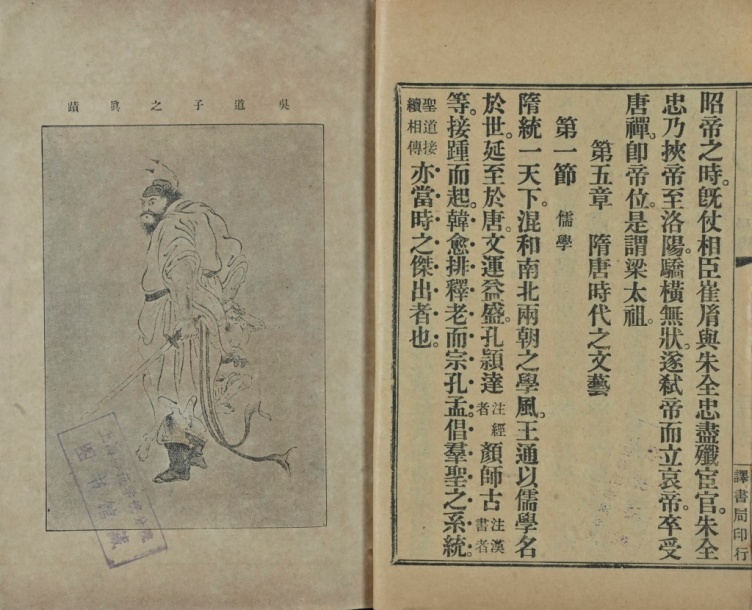 昭帝之時。既仗相臣崔胤與朱全忠盡殲宦官。朱全
忠乃挾帝至洛陽。驕橫無狀。遂弒帝而立哀帝。卒受
唐禪。卽帝位。是謂梁太祖。
第五章　隋唐時代之文藝
第一節　儒學
隋統一天下。混和南北兩朝之學風。王通以儒學名
於世。延至於唐。文運益盛。孔穎達注經者顏師古注漢書者
等。接踵而起。韓愈排釋老而宗孔孟。倡羣聖之系統。
聖道接續相傳亦當時之傑出者也。
譯書局印行
吳道子之眞蹟
圖書館藏